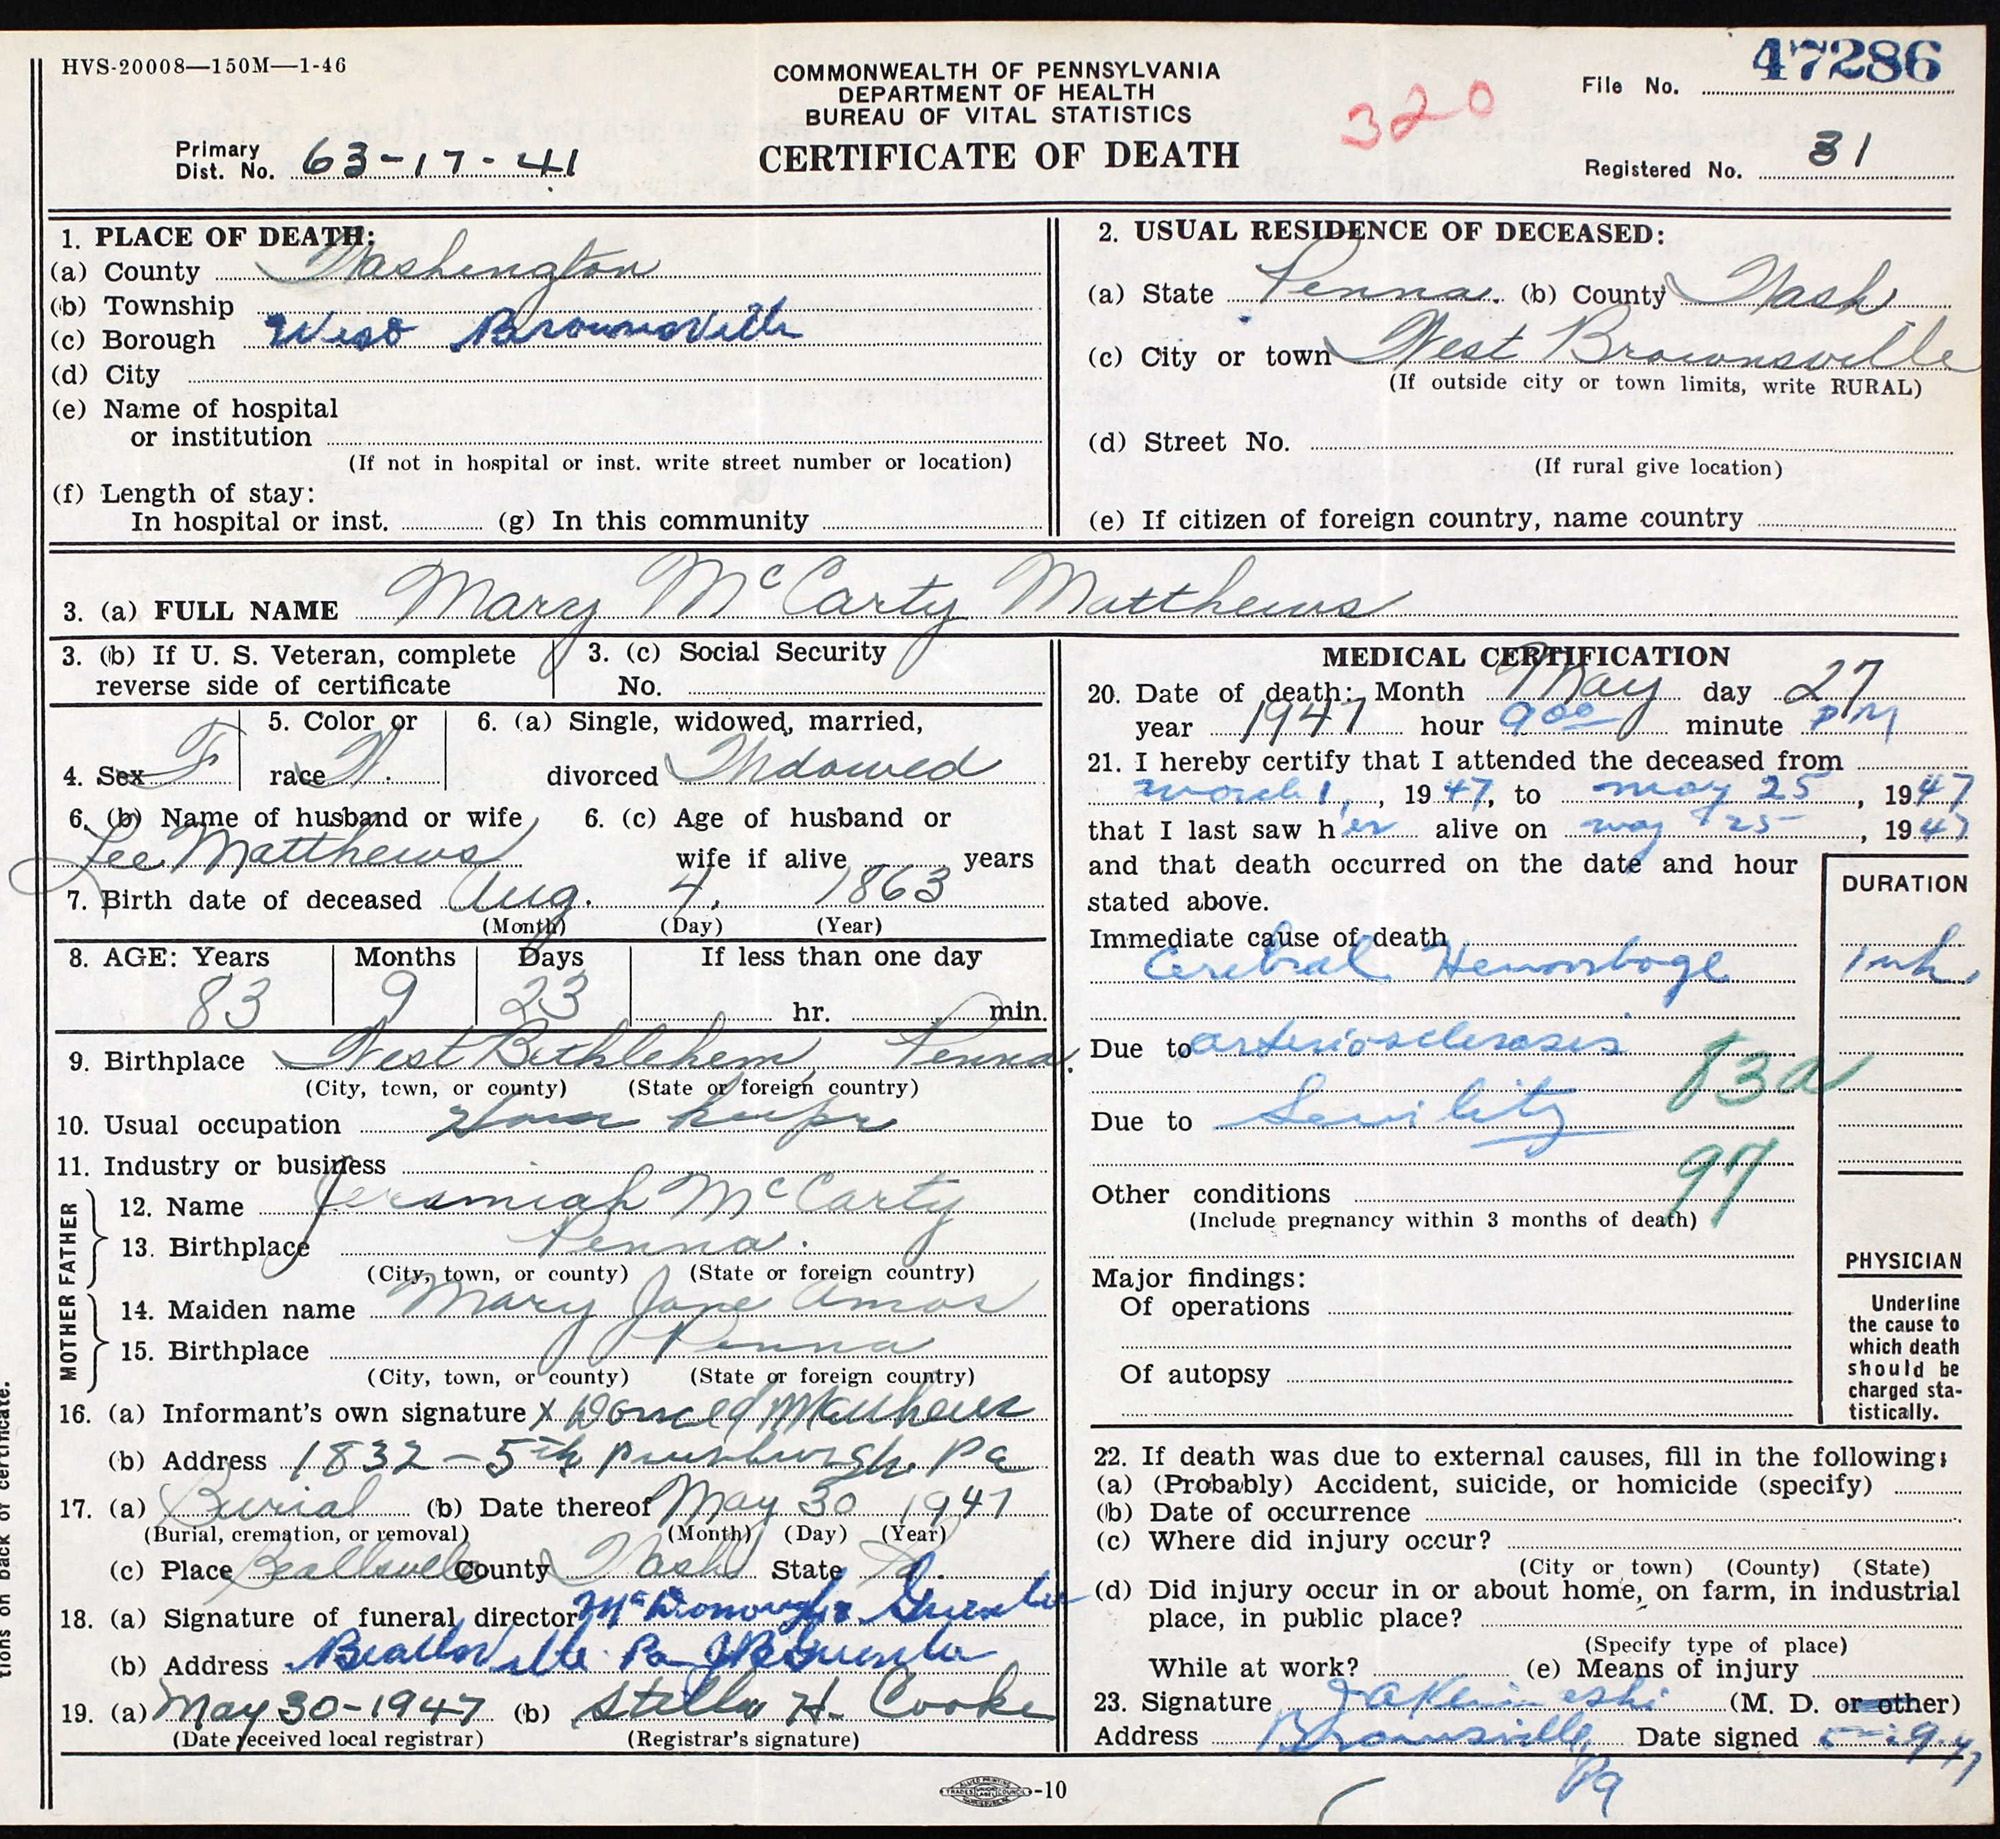 HVS-20008—150M—1-46
COMMONWEALTH OF PENNSYLVANIA
DEPARTMENT OF HEALTH
BUREAU OF VITAL STATISTICS
CERTIFICATE OF DEATH
320
File No. 47286
Primary
Dist. No. 63-17-41
Registered No. 31
1. PLACE OF DEATH:
(a) County Washington
(b) Township
(c) Borough West Brownsville
(d) City
(e) Name of hospital
or institution
(If not in hospital or inst. write street number or location)
(f) Length of stay:
In hospital or inst. (g) In this community
2. USUAL RESIDENCE OF DECEASED:
(a) State Penna. (b) County Wash.
(c) City or town West Brownsville
(If outside city or town limits, write RURAL)
(d) Street No.
(If rural give location)
(e) If citizen of foreign country, name country
3. (a) FULL NAME Mary McCarty Matthews
3. (b) If U. S. Veteran, complete
reverse side of certificate
3. (c) Social Security
No.
4. Sex F
5. Color or
race W.
6. (a) Single, widowed, married,
divorced Widowed
6. (b) Name of husband or wife
Lee Matthews
6. (c) Age of husband or
wife if alive years
7. Birth date of deceased Aug. 4, 1863
(Month) (Day) (Year)
8. AGE: Years Months Days If less than one day
83 9 23 hr. min.
9. Birthplace West Bethlehem, Penna.
(City, town, or county) (State or foreign country)
10. Usual occupation
11. Industry or business
FATHER
12. Name Jeremiah McCarty
13. Birthplace Penna.
(City, town, or county) (State or foreign country)
MOTHER
14. Maiden name Mary Jane Amos
15. Birthplace Penna
(City, town, or county) (State or foreign country)
16. (a) Informant's own signature X Matthews
(b) Address 1832 - 5th Pa
17. (a) Burial (b) Date thereof May 30 1947
(Burial, cremation, or removal) (Month) (Day) (Year)
(c) Place Beallsville County Wash State Pa.
18. (a) Signature of funeral director
(b) Address Beallsville Pa
19. (a) May 30-1947 (b) Stella H. Cooke
(Date received local registrar) (Registrar's signature)
MEDICAL CERTIFICATION
20. Date of death: Month May day 27
year 1947 hour 9 00 minute PM
21. I hereby certify that I attended the deceased from
March 1, 1947, to May 25, 1947
that I last saw her alive on May 25, 1947
and that death occurred on the date and hour
stated above.
DURATION
Immediate cause of death
Cerebral Hemorrhage 1 wk
Due to arteriosclerosis
83a
Due to Senility
97
Other conditions
(Include pregnancy within 3 months of death)
Major findings:
Of operations
Of autopsy
PHYSICIAN
Underline
the cause to
which death
should be
charged sta-
tistically.
22. If death was due to external causes, fill in the following:
(a) (Probably) Accident, suicide, or homicide (specify)
(b) Date of occurrence
(c) Where did injury occur?
(City or town) (County) (State)
(d) Did injury occur in or about home, on farm, in industrial
place, in public place?
(Specify type of place)
While at work? (e) Means of injury
23. Signature (M. D. or other)
Address Brownsville, Pa Date signed
-10